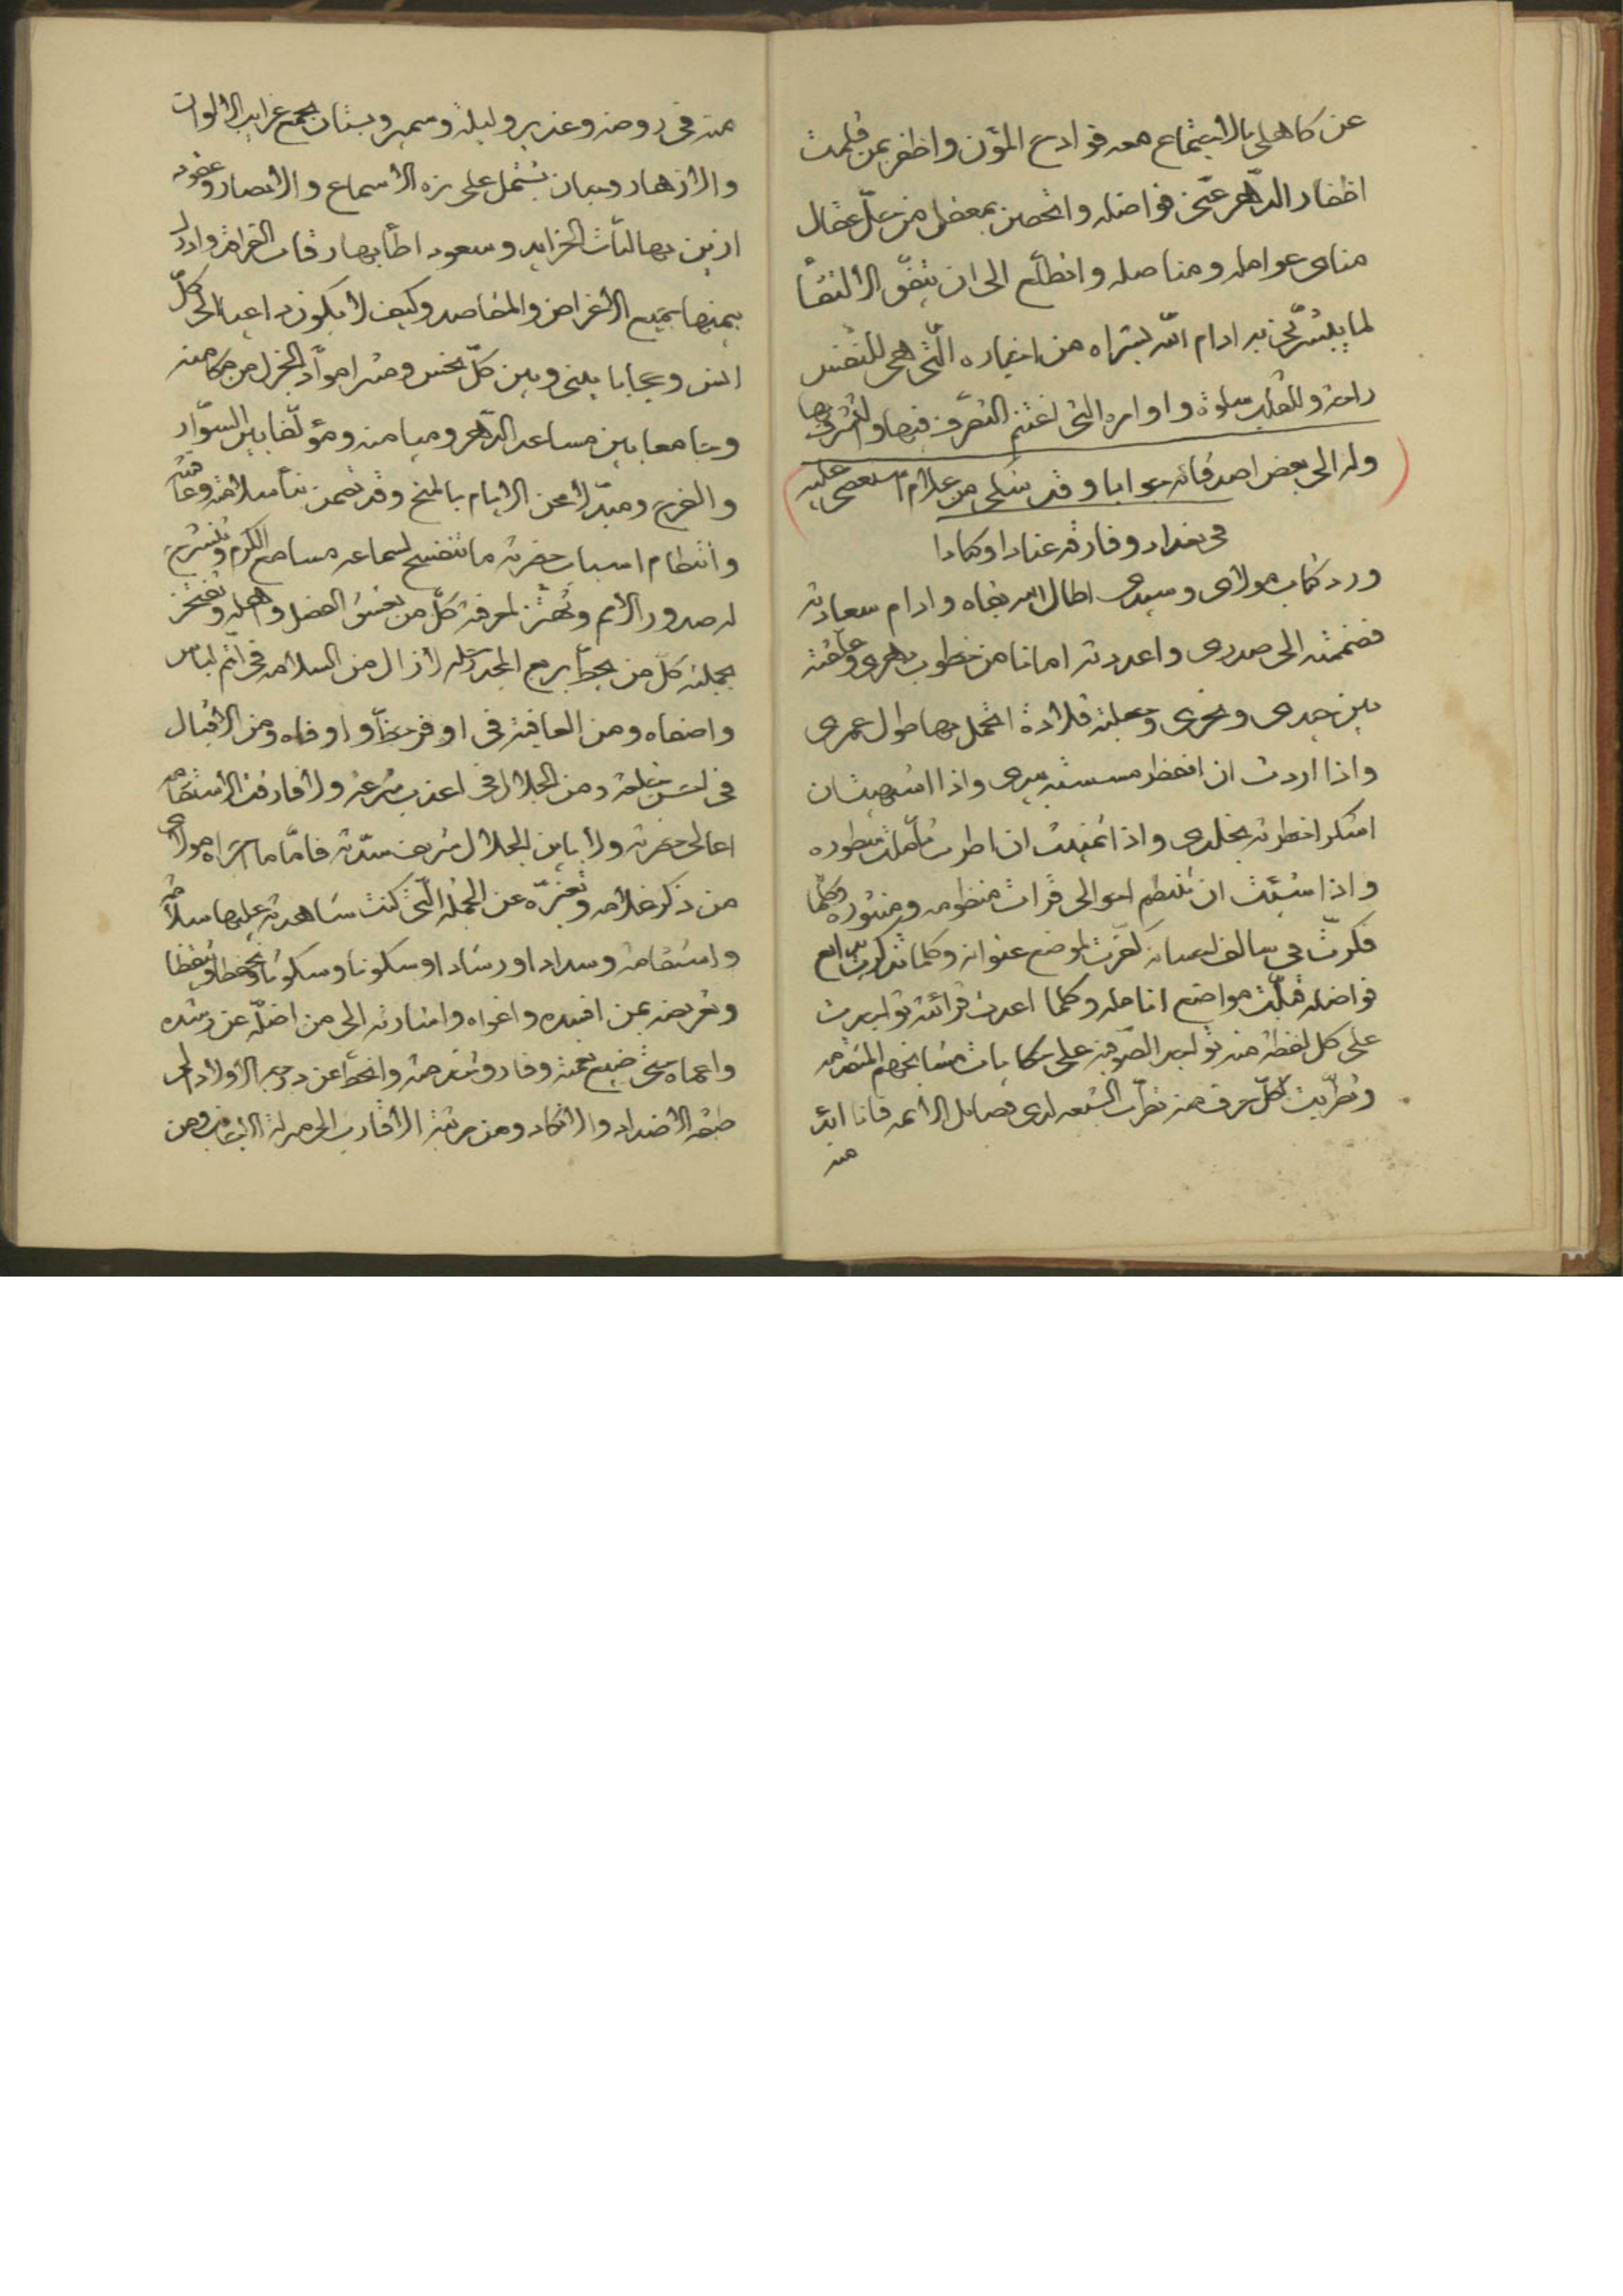 عن كاهلى بالاجتماع معه فوادح المؤن واظفر بمن قلمت
اظفار الدهر عنى فواضله وانحصن بمعقل من حل عقال
مناى عوامله ومناصله واتطلع الى ان يتفق الالتقا
لما يبشرنى به ادام الله بشراه من اخباره التى هى للنفس
راحة وللقلب سلوة واوامره التى اغتنم التصرف فيها والتشرف بها
وله الى بعض اصدقائه جوابا وقد شكى من غلام استعصى عليه
فى بغداد وفارقه عنادا وكمادا
ورد كتاب مولاى وسيدى اطال الله بقاه وادام سعادته
فضممته الى صدرى واعددته امانا من خطوب دهرى وعلقته
بين جيدى ونحرى وجعلته قلادة اتجمل بها طول عمرى
واذا اردت ان اتعطر مسسته بيدى واذا اشتهيت ان
اسكر اخطرته بخلدى واذا تمنيت ان اطرب تأملت سطوره
واذا شئت ان تنتظم احوالى قرات منظومه ومنثوره وكلما
فكرت فى سالف احسانه كفرت لموضع عنوانه وكلما تذكرت بدايع
فواضله قبلت مواضع انامله وكلما اعدت قرائته تواجدت
على كل لفظة منه تواجد الصوفية على حكايات مشايخهم المتقدمه
وتطربت لكل حرف منه تطرب الشيعه لدى فضايل الائمه فانا ابدا
منه
منه فى روضه وغدير وليلة وسمير وبستان يجمع غرايب الالوان
والازهار وبيان يشتمل على نزه الاسماع والابصار وعقود
ازين بها لبات الخرايد وسعود اطأ بها رقاب الفراقد وادرك
بيمنها جميع الاغراض والمقاصد وكيف لا يكون داعيا الى كل
انس وحجابا بينى وبين كل نحس ومثيرا مواد الجزل من مكامنه
وجامعا بين مساعد الدهر وميامنه ومؤلفا بين السوار
والفرح ومبدلا محن الايام بالمنح وقد تضمن نبأ سلامته وعافيته
وانتظام اسباب حضرته ما تنفسح لسماعه مسامع الكرم وتنشرح
له صدور الامم وتهتز لمعرفته كل من يعشق الفضل واهله وتفتخر
بجملته كل من يحط بربع المجد رحله لا زال من السلامه فى اتم لباس
واضفاه ومن العافية فى اوفر حظ واوفاه ومن الاقبال
فى احسن حلته ومن الجلال فى اعذب شرعه ولا فارقت الاستقامه
اعالى حضرته ولا باين الجلال شريف سدته فاما ما اجراه مولاى
من ذكر غلامه وتغيره عن الجمله التى كنت شاهدته عليها سلامة
واستقامة وسدادا ورشادا وسكونا وسكوتا وتحفظا وتيقظا
وتعريضه بمن افسده واغواه واشارته الى من اضله عن رشده
واعماه حتى ضيع نعمته وفارق خدمته وانحط عن درجه الاولاد الى
طبقه الاضداد والانكاد ومن مرتبة الاقارب الى منزلة الاجانب ومن